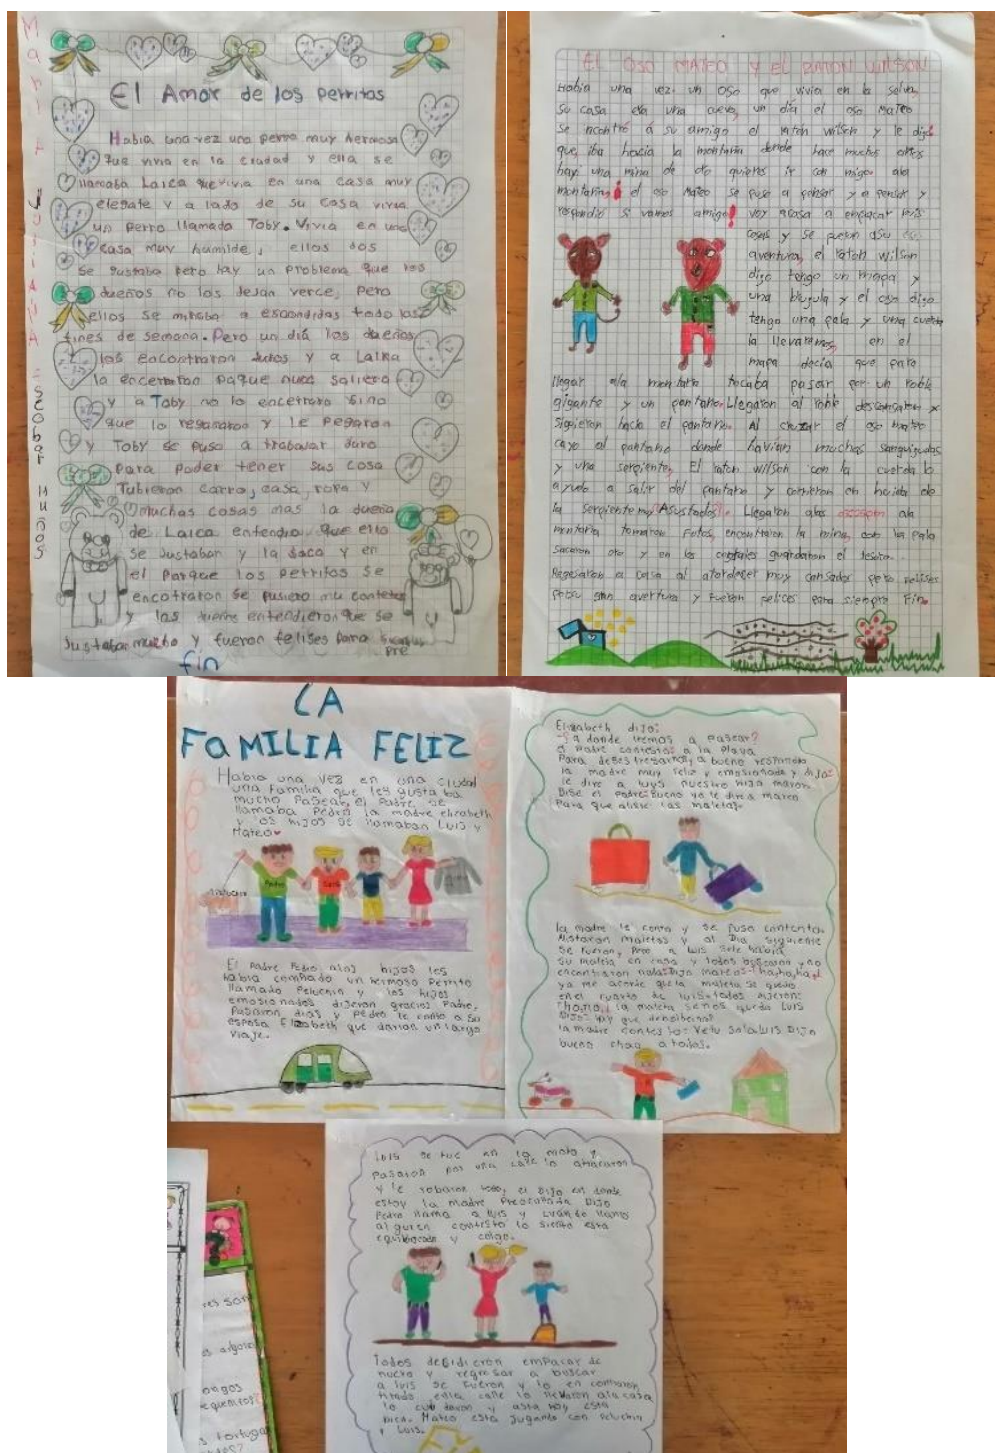 Maria Juliana Escobar Muños
El Amor de los perritos
Habia una vez una perra muy hermosa
que vivia en la ciudad y ella se
llamaba Laica que vivia en una casa muy
elegate y a lado de su casa vivia
un perro llamado Toby. Vivia en una
casa muy humilde, ellos dos
se gustaba pero hay un problema que los
dueños no los dejan verce, pero
ellos se miraba a escondidas todo los
fines de semana. Pero un diá los dueños
los encontraron Juños y a Laika
la encerraron paque nuca saliera
y a Toby no lo encerraro sino
que lo regañaron y le pegaron
y Toby se puso a trabavar duro
para poder tener sus cosa
Tubieron carro, casa, ropa y
muchas cosas mas la dueña
de Laica entendio que ello
se Justaban y la saco y en
el parque los perritos se
encotraron se pusiero mu contetos
y los dueños entendieron que se
Justaban mucho y fueron felises para siempre
fin
El OSO MATEO y El RATON WILSON
Habia una vez un oso que vivia en la selva,
su casa era una cueva, un día el oso Mateo
se incontró á su amigo el raton wilson y le dijo
que, iba hacia la montaña donde hace muchos años
hay una mina de oro quieres ir con migo ala
montaña¡ el oso Mateo se puso a pensar y a pensar y
respondio si vamos amigo! voy acasa a empacar mis
cosas y se fueron a su
aventura, el raton wilson
dijo tengo un mapa y
una brujula y el oso dijo
tengo una pala y una cuerda
la llevaremos, en el
mapa decia que para
llegar ala montaña tocaba pasar por un roble
gigante y un pantano. Llegaron al roble descansaron y
siguieron hacia el pantano. Al cruzar el oso mateo
cayo al pantano donde havian muchas sanguijuelas
y una serpiente, El raton wilson con la cuerda lo
ayudo a salir del pantano y corrieron en huida de
la serpiente muy Asustados!. Llegaron alas ala
montaña tomaron fotos, encontraron la mina, con la pala
sacaron oro y en los costales guardaron el tesoro.
Regresaron a casa al atardecer muy cansados pero felises
por su gran avertura y fueron felices para siempre Fin.
LA
FaMILIA FELIZ
Habia una vez en una ciudad
una familia que les gustaba
mucho Pasear, el Padre se
llamaba Pedro la madre elizabeth
y los hijos se llamaban Luis y
Mateo
Pedro
Luis
Peluchin
El Padre Pedro alos hijos les
habia comprado un hermoso Perrito
llamado Peluchin y los hijos
emosionados dijeron gracias Padre.
Pasaron dias y Pedro le conto a su
esposa Elizabeth que darian un largo
viaje.
Elizabeth dijo:
-¿a donde iremos a pasear?
el Padre contesto: a la Playa
Para deses tresarnos, a bueno respondio
la madre muy feliz y emosionada y dijo:
le dire a luys nuestro hijo mayor
Dise el Padre: Bueno yo le dire a mateo
Para que aliste las maletas.
la madre le conto y se puso contento.
Alistaron maletas y al Dia siguiente
se fueron, Pero a Luis sele habia
su maleta en casa y todos buscaron y no
encontraron nada. Dijo mateo: ¡ha, ho, ha,!
ya me acorde que la maleta se quedo
en el cuarto de luis- todos dijeron:
¡ho, no,! la maleta senos quedo LUIS
Dijo: Hay que devolbernos
la madre contesto: Ve tu solo LUIS Dijo
bueno chao a todos.
Luis se fue en la moto y
Pasaron por una calle lo atracaron
y le robaron todo, el Dijo en donde
estoy la madre Preocupada Dijo
Pedro llama a LUIS y cuando llamo
alguien contesto lo siento esta
equibocado y colgo.
Todos desidieron empacar de
nuevo y regresar a buscar
a luis se fueron y lo en contraron
tirado enla calle lo llevaron ala casa
lo cui daron y asta hoy esta
bien. Mateo esta Jugando con peluchin
y Luis.
Fin